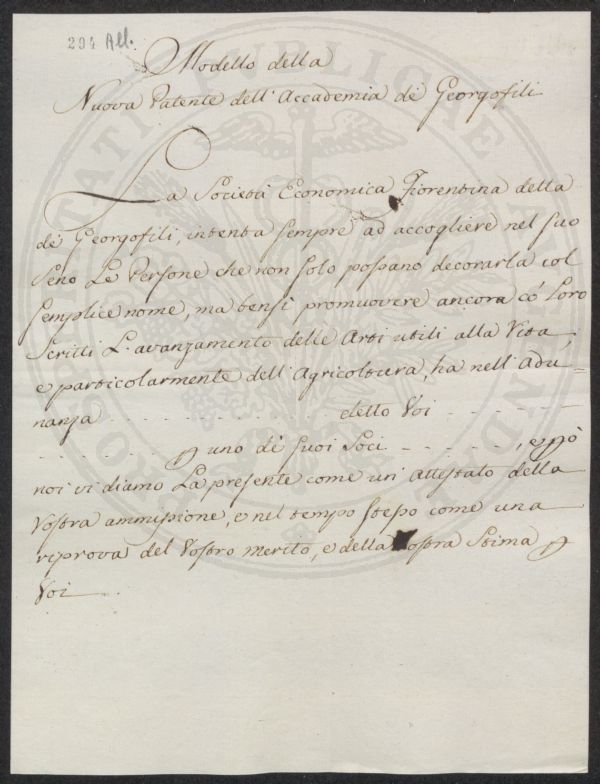 294 All.
Modello della
Nuova Patente dell'Accademia de Georgofili
La Società Economica Fiorentina della
de Georgofili, intenta sempre ad accogliere nel suo
Seno Le Persone che non solo possano decorarla col
semplice nome, ma bensì promuovere ancora co' Loro
Scritti L'avanzamento delle Arti utili alla Vita,
e particolarmente dell'Agricoltura, ha nell'Adu=
nanza . . . . . . . . . . . . . . . . detto Voi . . . . . . . .
. . . . . . . . . . uno de suoi Soci . . . . . . . . ,
noi vi diamo La presente come un attestato della
Vostra ammissione, e nel tempo stesso come una
riprova del Vostro merito, e della Nostra Stima
Voi . . .
PROSPERITATI PUBLICAE AUGENDAE